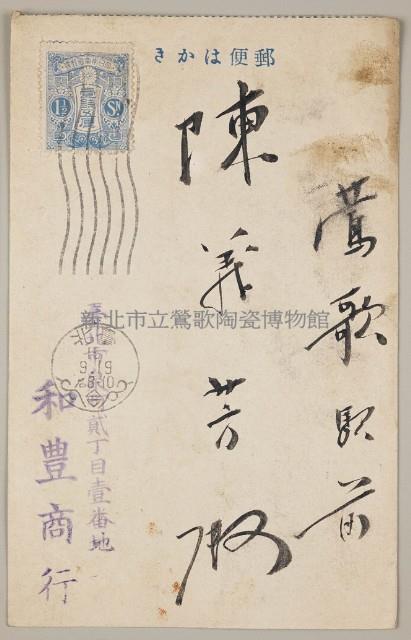 郵便はかき
鶯歌駅前
陳義芳殿
新北市立鶯歌陶瓷博物館
貳丁目壹番地
和豊商行
1½ Sn
臺北